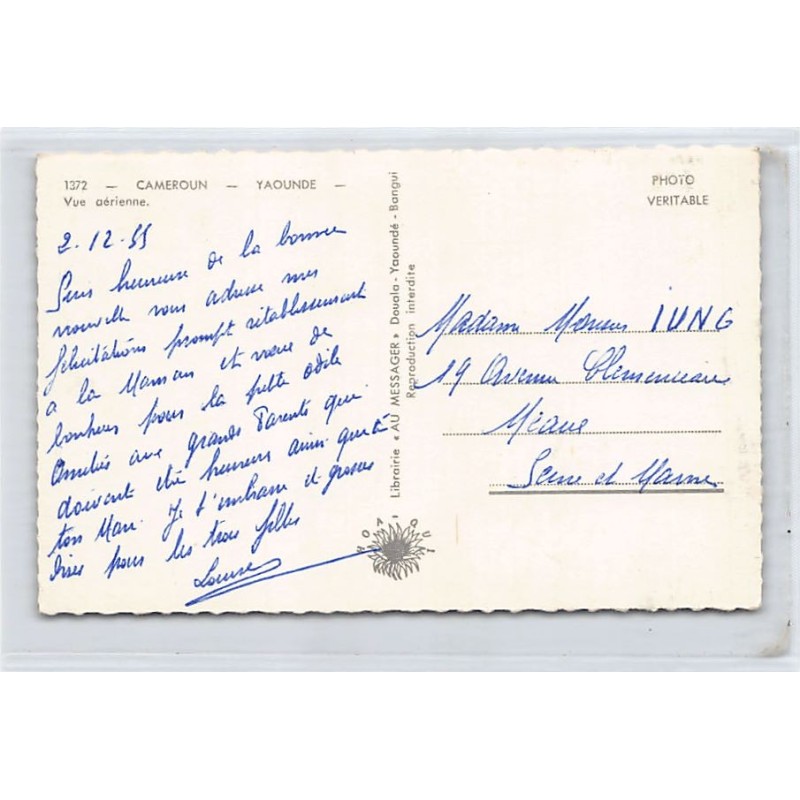 1372 — CAMEROUN — YAOUNDE —
Vue aérienne.
2.12.55
Suis heureuse de la bonne
nouvelle vous adresse mes
félicitations prompt rétablissement
a la Maman et vœux de
bonheur pour la petite Odile
Amitiés aux grands Parents qui
doivent être heureux ainsi que
ton Mari. Je t'embrasse et grosses
bises pour les trois filles
Louise
Librairie « AU MESSAGER » Douala - Yaoundé - Bangui
Reproduction interdite
HOA-QUI
PHOTO
VERITABLE
Madame IUNG
19 Avenue Clemenceau
Seine et Marne